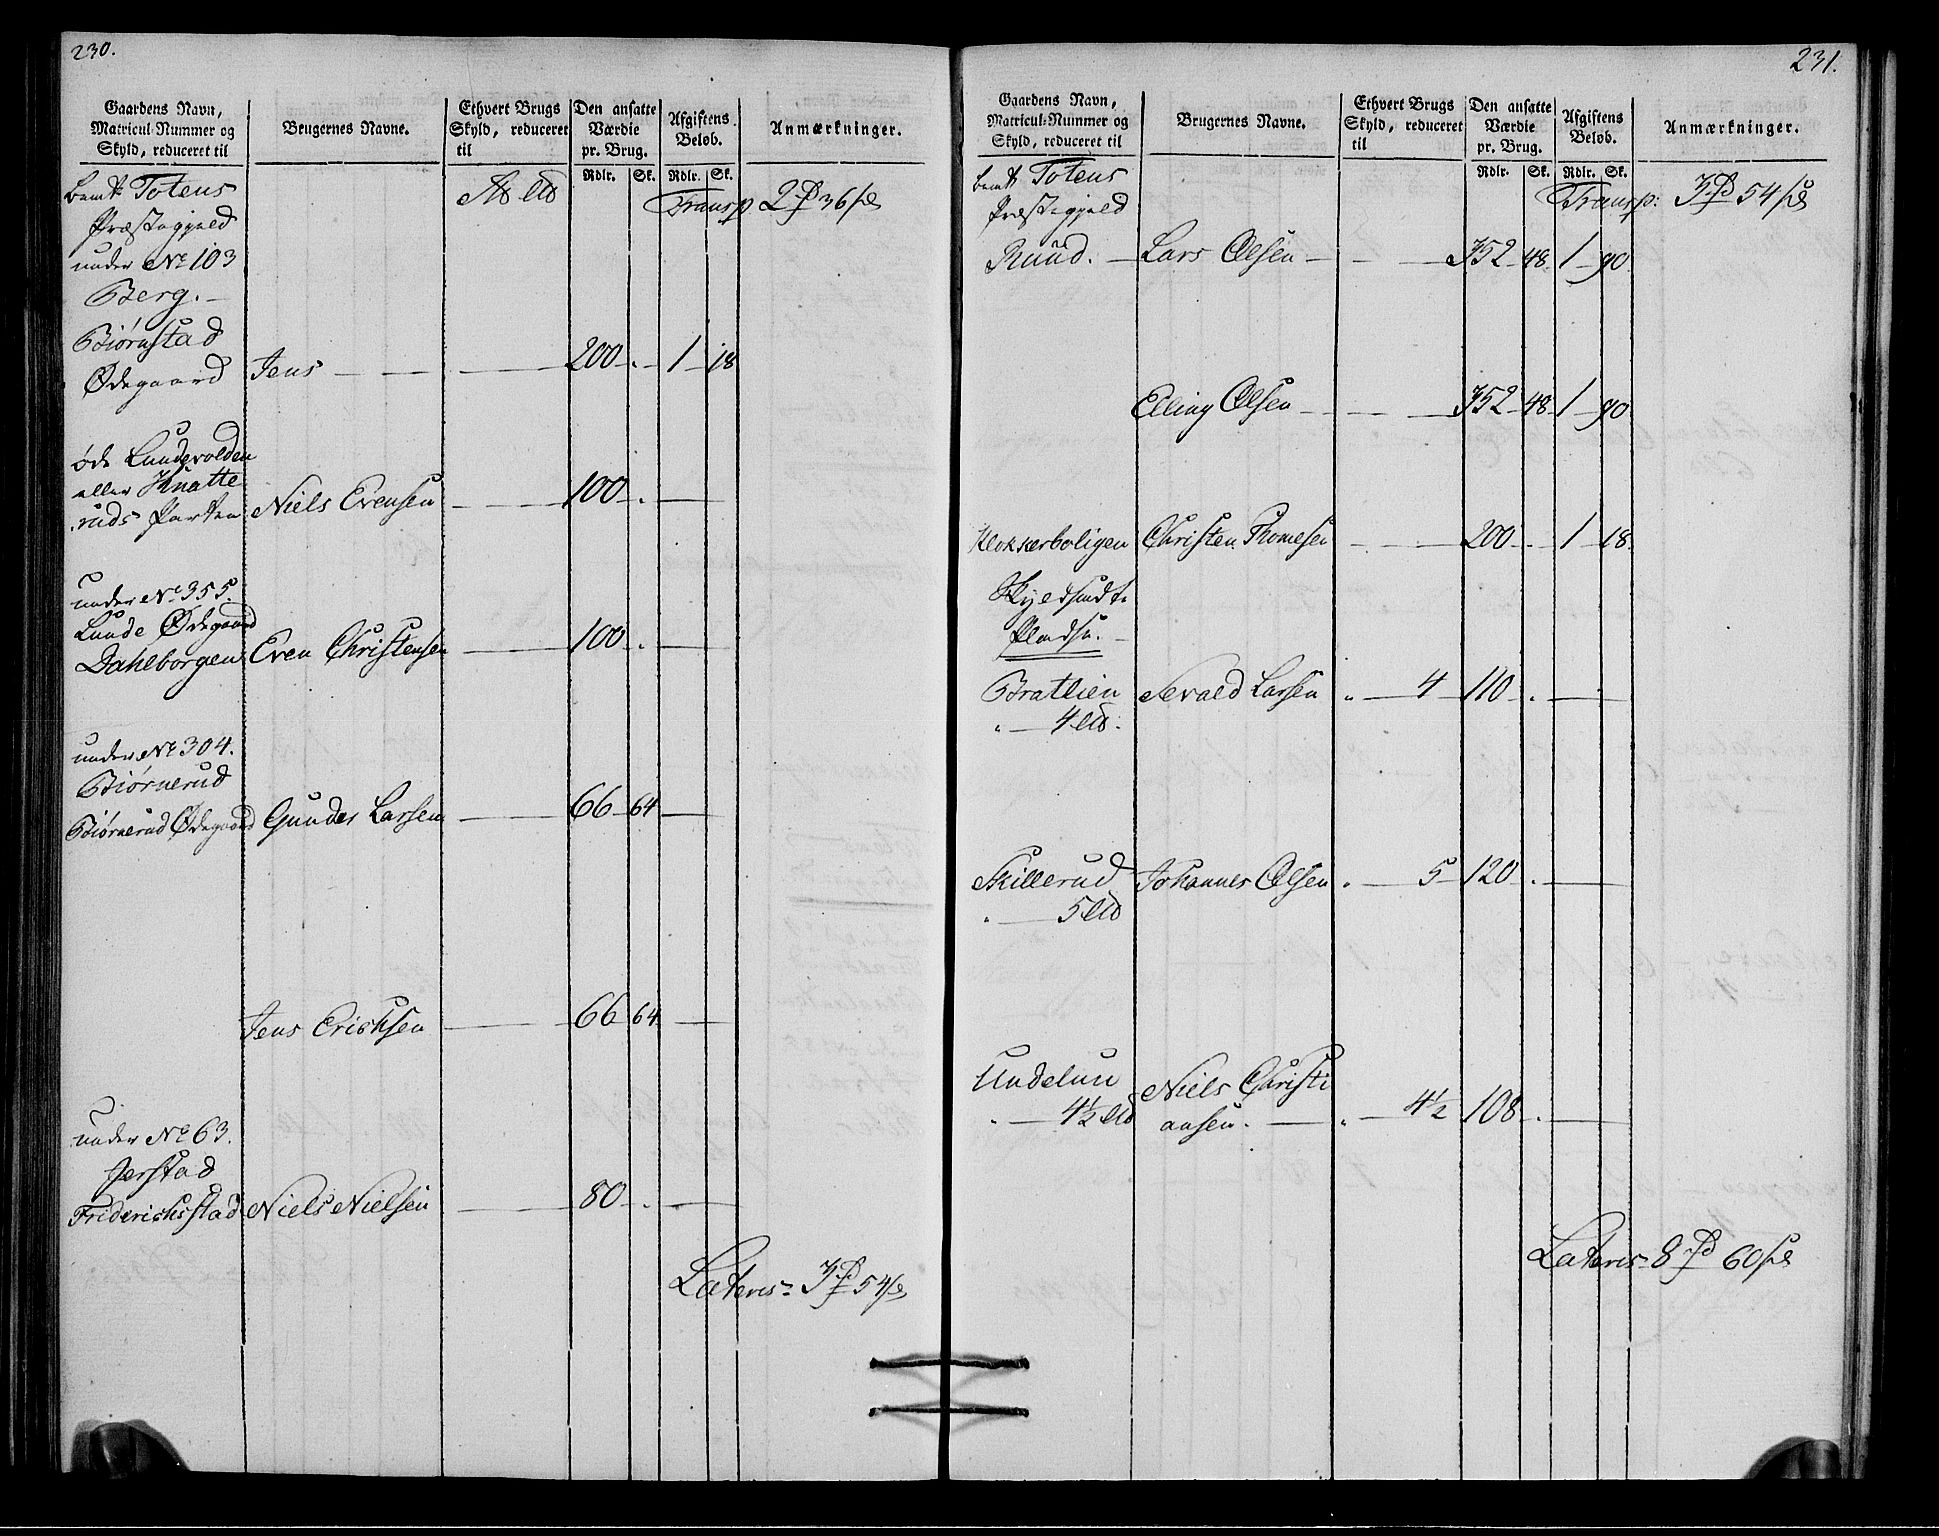 230.
Gaardens Navn, Matricul-Nummer og Skyld, reduceret til
Brugernes Navne.
Ethvert Brugs Skyld, reduceret til
Den ansatte Værdie pr. Brug.
Afgiftens Beløb.
Anmærkninger.
Rdlr. Sk. Rdlr. Sk.
bemte Totens
Præstegjeld
Transp 2 36
under No 103
Berg.
Biørnstad
Ødegaard Jens 200 - 1 18
øde Lundevolden
eller Knatte
ruds Parten Niels Evensen 100 -
under No 355.
Lunde Ødegaard
Dahlborgen Even Christensen 100 -
under No 304.
Biørnerud
Biørnerud Ødegaard Gunder Larsen 66 64
Jens Erichsen 66 64
under No 63.
Jerstad
Friderichsstad Niels Nielsen 80 -
Lateris 3 54
231.
Gaardens Navn, Matricul-Nummer og Skyld, reduceret til
Brugernes Navne.
Ethvert Brugs Skyld, reduceret til
Den ansatte Værdie pr. Brug.
Afgiftens Beløb.
Anmærkninger.
Rdlr. Sk. Rdlr. Sk.
bemte Totens
Præstegjeld
Transp: 3 54
Ruud. Lars Olsen 352 48 1 90
Elling Olsen 352 48 1 90
Klokkerboligen Christen Thomesen 200 - 1 18
Pladse.
Bratlien Sevald Larsen " 4 110 -
" 4
Skillerud Johannes Olsen " 5 120 -
" 5
Undelun Niels Christi
" 4½ ansen. " 4½ 108 -
Lateris 8 60